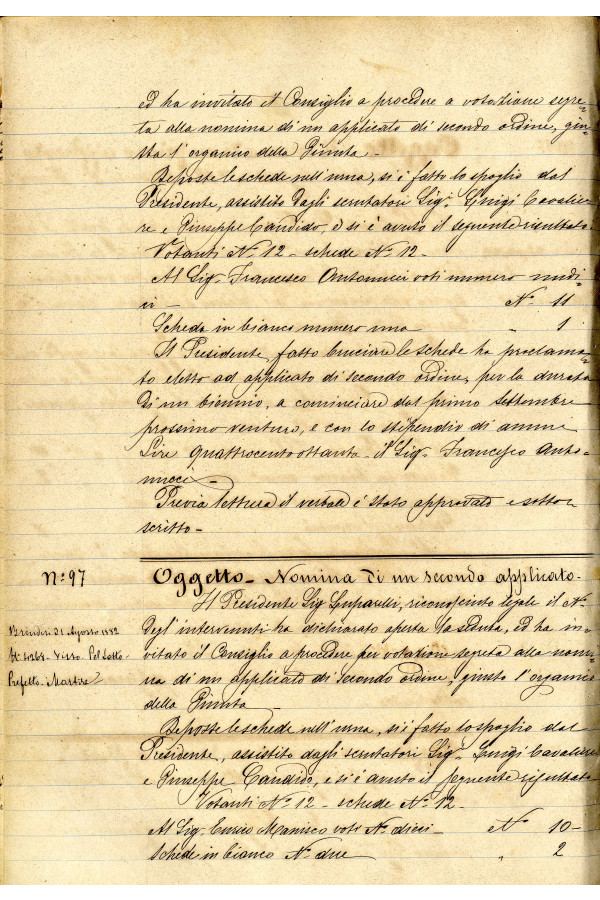 ed ha invitato il Consiglio a procedere a votazione segre-
ta alla nomina di un applicato di secondo ordine, giu-
sta l'organico della Pianta -
Deposte le schede nell'urna, si è fatto lo spoglio dal
Presidente, assistito dagli scrutatori Sigri Luigi Cavalie-
re e Giuseppe Candido, e si è avuto il seguente risultato
Votanti No 12 - schede No 12 -
Al Sig. Francesco Antonucci voti numero undi-
ci - No 11
Scheda in bianco numero una " 1
Il Presidente, fatto bruciare le schede ha proclama-
to eletto ad applicato di secondo ordine, per la durata
di un biennio, a cominciare dal primo Settembre
prossimo venturo, e con lo stipendio di annue
Lire quattrocentottanta - il Sig. Francesco Anto-
nucci -
Previa lettura il verbale è stato approvato e sotto-
scritto -
No 97
Oggetto - Nomina di un secondo applicato -
Il Presidente Sig. riconosciuto legale il No
degl'intervenuti ha dichiarato aperta la seduta, ed ha in-
vitato il Consiglio a procedere per votazione segreta alla nomi-
na di un applicato di secondo ordine, giusto l'organico
della Pianta
Brindisi 21 Agosto 1882
No 4268 - Visto Pel Sotto-
Prefetto - Martire
Deposte le schede nell'urna, si è fatto lo spoglio dal
Presidente, assistito dagli scrutatori Sigri Luigi Cavaliere
e Giuseppe Candido, e si è avuto il seguente risultato
Votanti No 12 - schede No 12 -
Al Sig. Enrico Manisco voti No dieci - No 10 -
Schede in bianco No due " 2